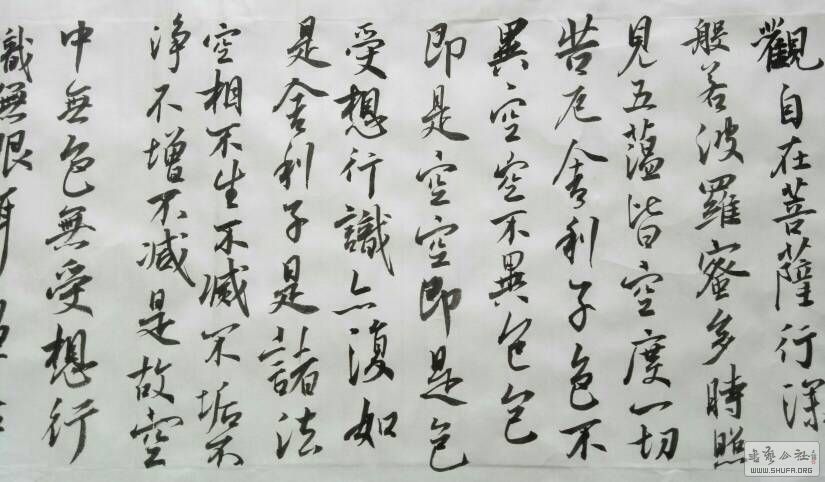 觀自在菩薩行深
般若波羅蜜多時照
見五蘊皆空度一切
苦厄舍利子色不
異空空不異色色
即是空空即是色
受想行識亦復如
是舍利子是諸法
空相不生不滅不垢不
淨不增不減是故空
中無色無受想行
識無眼耳
書藝公社
WWW.SHUFA.ORG